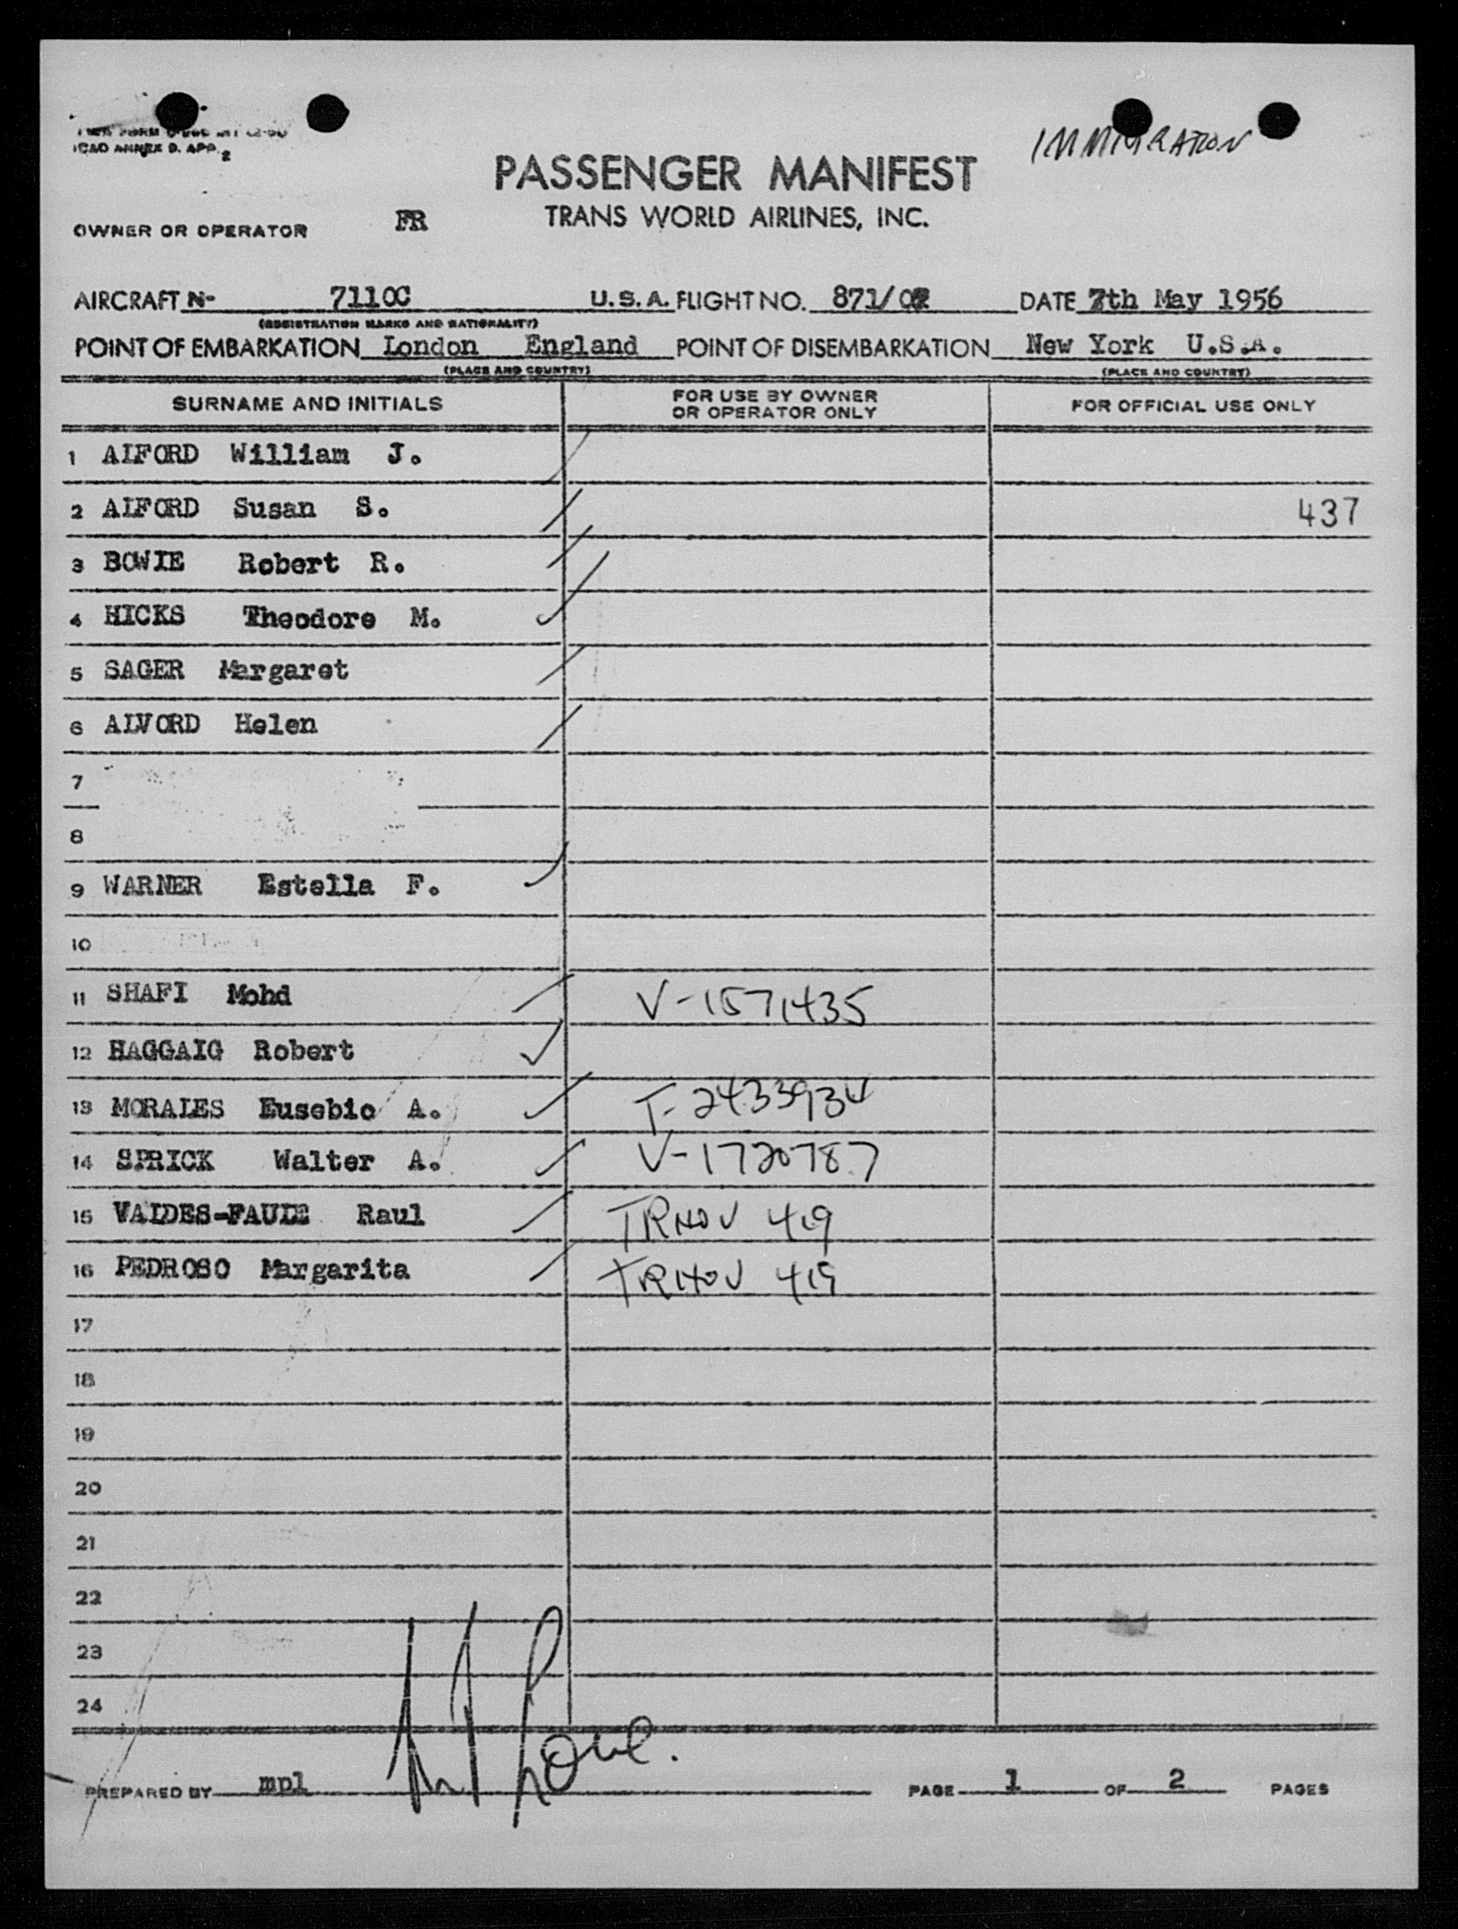 ICAO ANNEX 9. APP. 2
IMMIGRATION
PASSENGER MANIFEST
OWNER OR OPERATOR FR TRANS WORLD AIRLINES, INC.
AIRCRAFT N- 7110C U.S.A. FLIGHT NO. 871/07 DATE 7th May 1956
(REGISTRATION MARKS AND NATIONALITY)
POINT OF EMBARKATION London England POINT OF DISEMBARKATION New York U.S.A.
(PLACE AND COUNTRY) (PLACE AND COUNTRY)
SURNAME AND INITIALS FOR USE BY OWNER OR OPERATOR ONLY FOR OFFICIAL USE ONLY
1 ALFORD William J.
2 ALFORD Susan S. 437
3 BOWIE Robert R.
4 HICKS Theodore M.
5 SAGER Margaret
6 ALVORD Helen
7
8
9 WARNER Estella F.
10
11 SHAFI Mohd V-1571435
12 HAGGAIG Robert
13 MORALES Eusebio A. T-2433934
14 SPRICK Walter A. V-1720787
15 VALDES-FAULE Raul TRHOV 419
16 PEDROSO Margarita TRHOV 419
17
18
19
20
21
22
23
24
PREPARED BY mpl PAGE 1 OF 2 PAGES